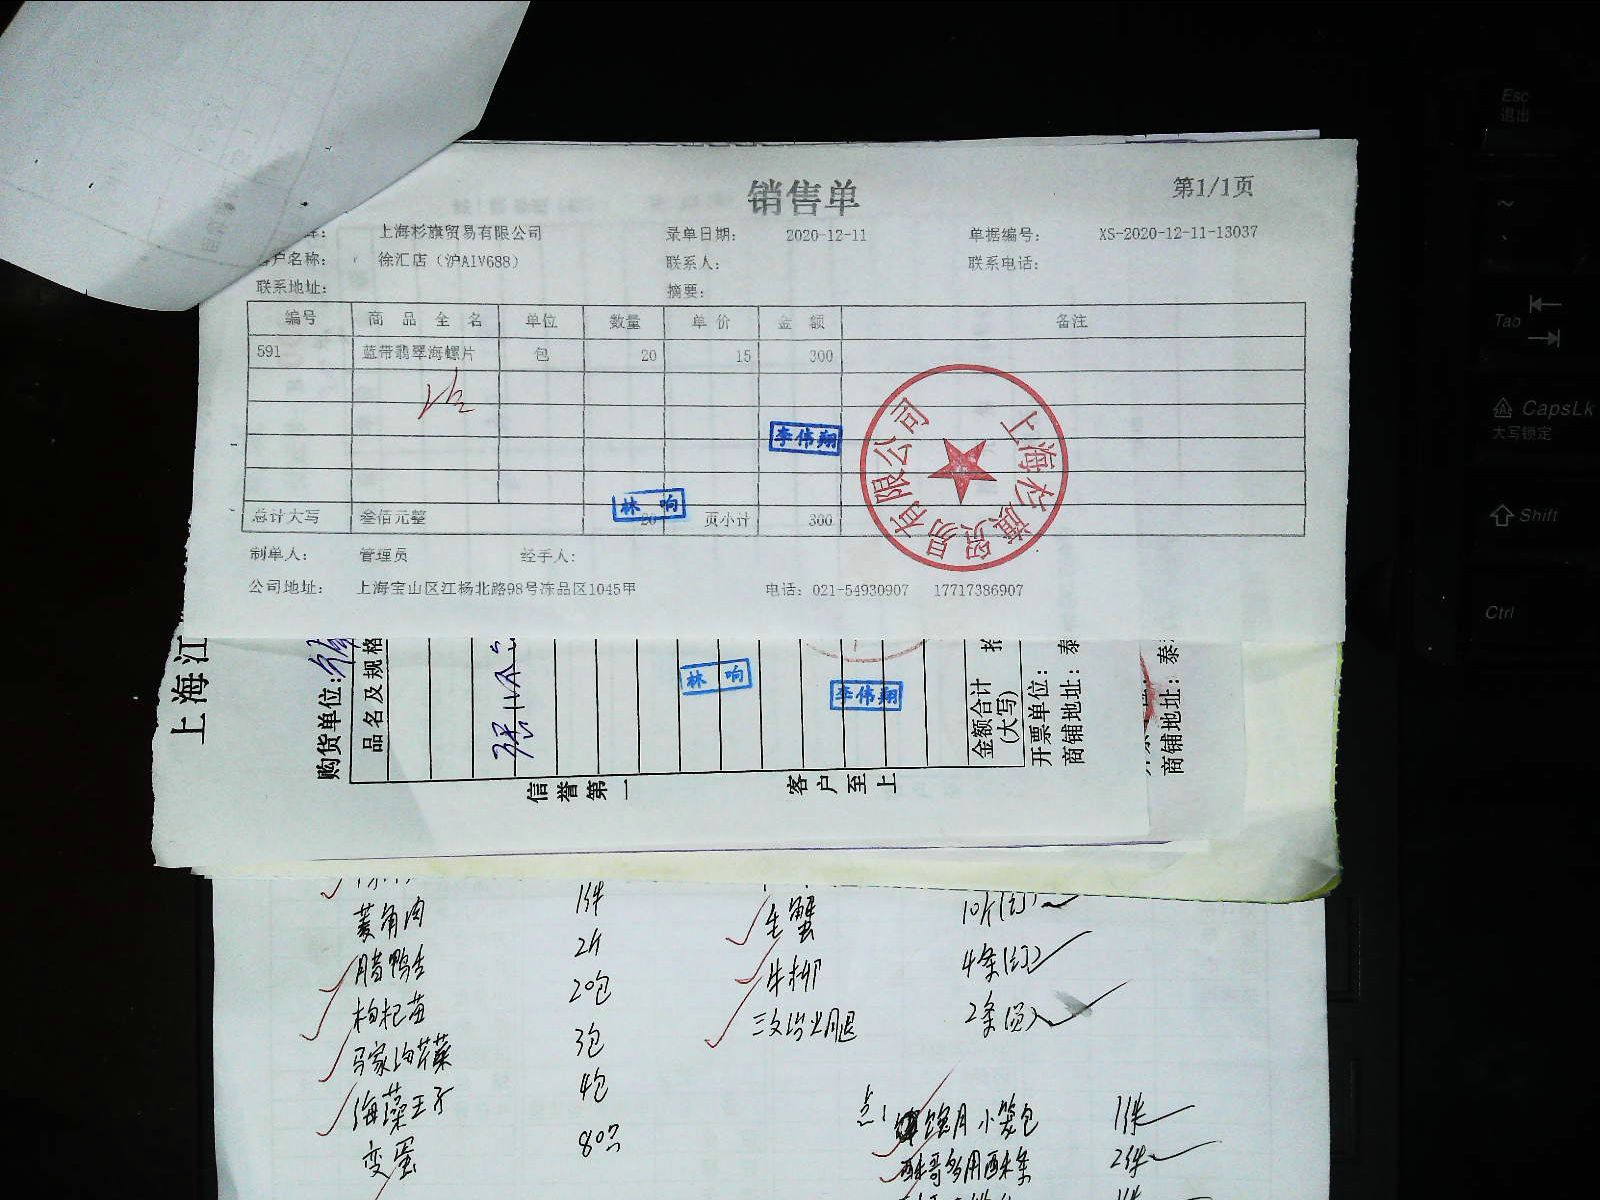 销售单
第1/1页
上海杉旗贸易有限公司 录单日期: 2020-12-11 单据编号: XS-2020-12-11-13037
户名称: 徐汇店（沪A1V688） 联系人: 联系电话:
联系地址: 摘要:
编号 商品全名 单位 数量 单价 金额 备注
591 蓝带翡翠海螺片 包 20 15 300
李伟翔
上海杉旗贸易有限公司
林响
总计大写 叁佰元整 20 页小计 300
制单人: 管理员 经手人:
公司地址: 上海宝山区江杨北路98号冻品区1045甲 电话: 021-54930907 17717386907
上海江
购货单位:
品名及规格
林响
李伟翔
金额合计
(大写)
开票单位:
商铺地址: 泰
商铺地址: 泰
信誉第一
客户至上
菱角肉 1件
腊鸭舌 2斤
枸杞苗 20包
马家沟芹菜 3包
海藻王子 4包
变蛋 80只
生蟹
牛柳 4条
三文治火腿 2条
小笼包 1件
2件
Esc
退出
Tab
CapsLk
大写锁定
Shift
Ctrl